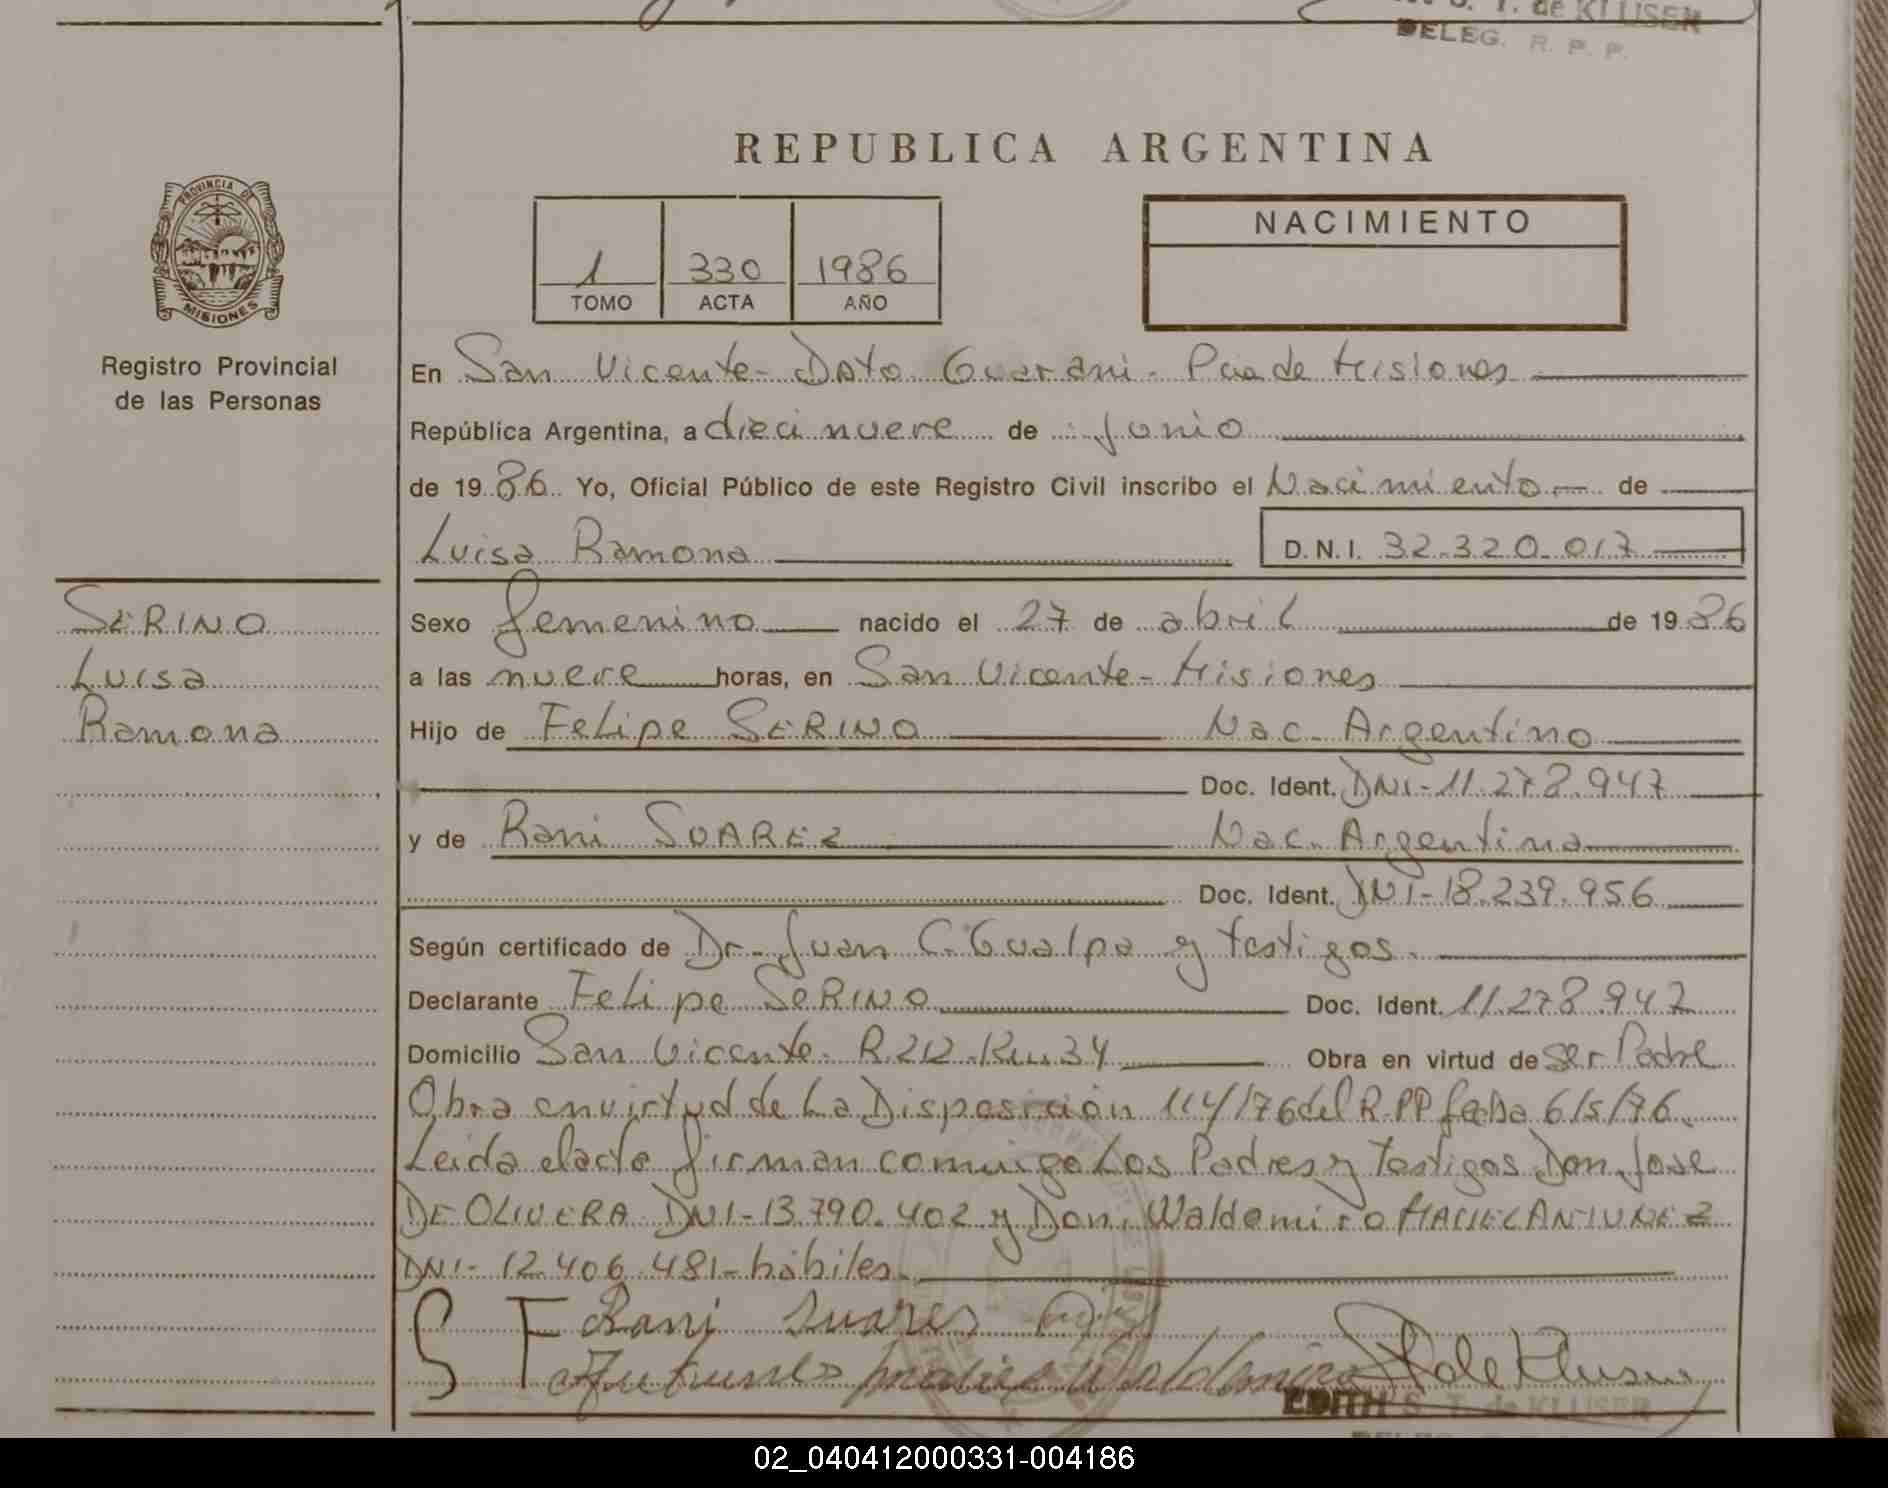 S. T. de KLUSER
DELEG. R. P. P.
REPUBLICA ARGENTINA
PROVINCIA DE
MISIONES
Registro Provincial
de las Personas
1 330 1986
TOMO ACTA AÑO
NACIMIENTO
En San Vicente - Dpto Guarani - Pcia de Misiones
República Argentina, a diecinueve de Junio
de 19 86 Yo, Oficial Público de este Registro Civil inscribo el Nacimiento de
Luisa Ramona D.N.I. 32.320.017
SERINO
Luisa
Ramona
Sexo femenino nacido el 27 de abril de 19 86
a las nueve horas, en San Vicente - Misiones
Hijo de Felipe SERINO Nac. Argentino
Doc. Ident. DNI - 11.278.947
y de Rani SUAREZ Nac. Argentina
Doc. Ident. DNI - 18.239.956
Según certificado de Dr. Juan C. Gualpa y testigos.
Declarante Felipe SERINO Doc. Ident. 11.278.947
Domicilio San Vicente. R.212. Km. 34 Obra en virtud de Ser Padre
Obra en virtud de La Disposición 114/76 del R.PP fecha 6/5/76.
Leida el acta firman conmigo Los Padres y Testigos Don Jose
DE OLIVERA DNI - 13.790.402 y Don Waldomiro MACIEL ANTUNEZ
DNI - 12.406.481 - hábiles.
S F Rani Suares
Antunes maciel Waldomiro
EDITH S. T. de KLUSER
02_040412000331-004186